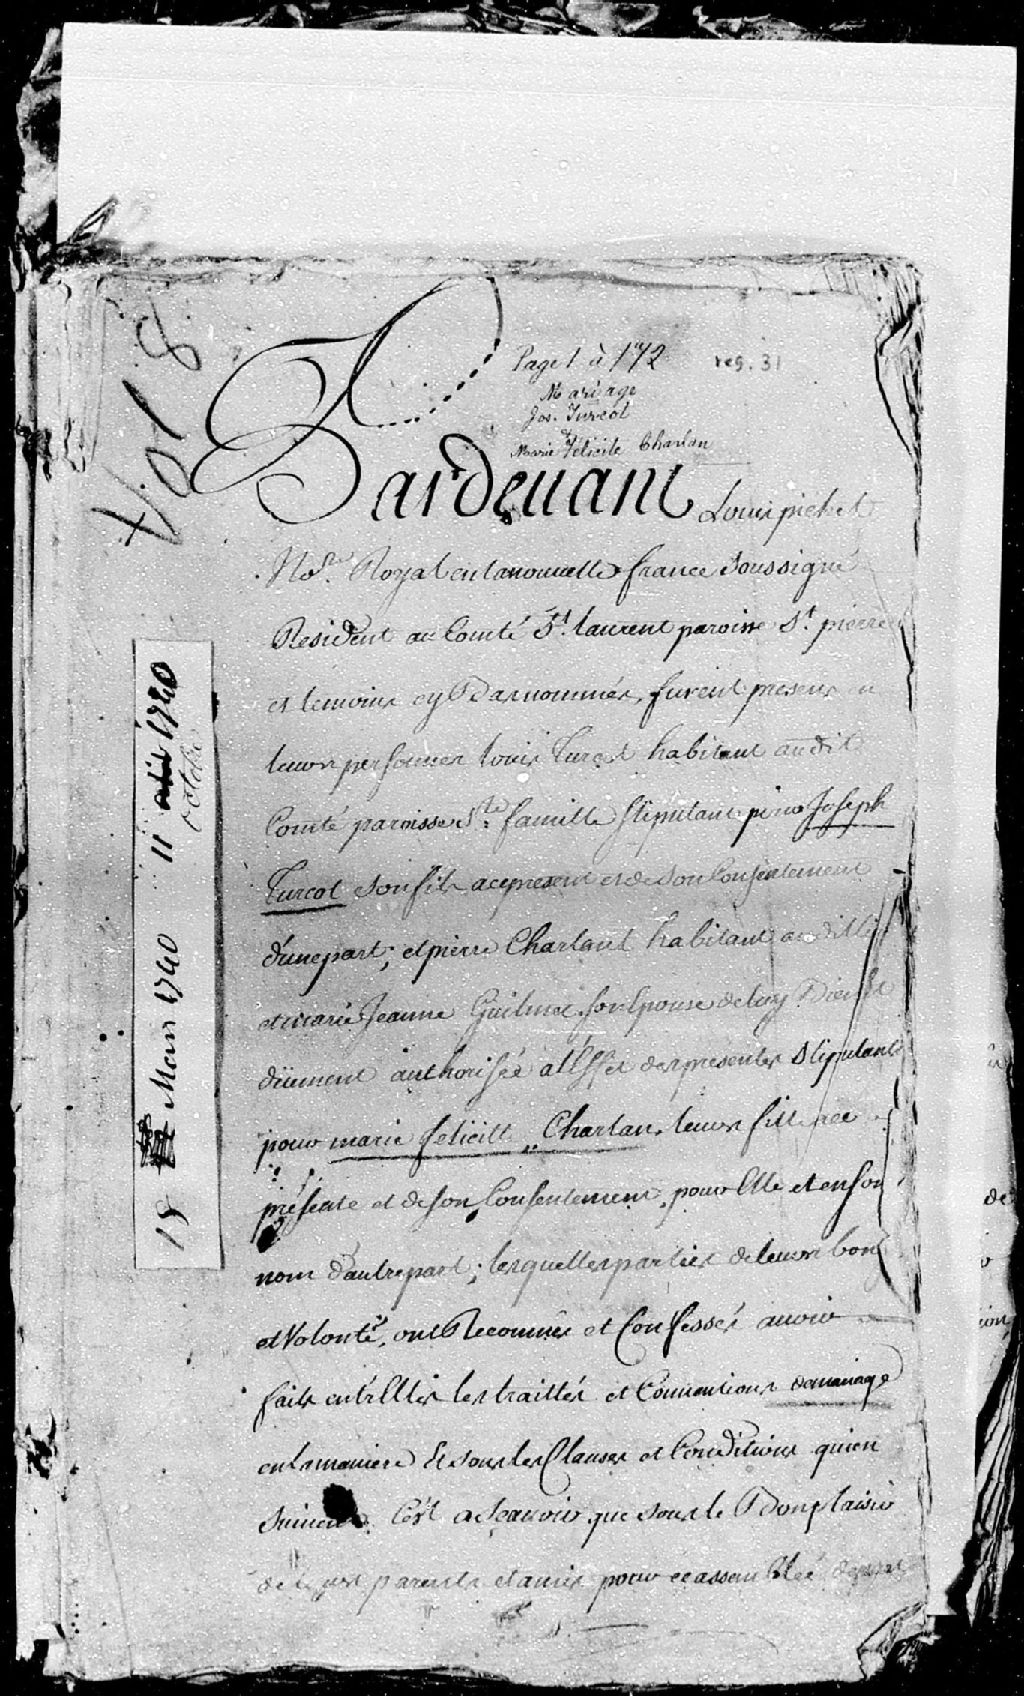 Vol 8
Page 1 à 172 reg. 31
Mariage
Jos. Turcot
&
Marie Félicité Charlan
Pardeuant Louis pichet
No.re Royal en la nouuelle france soussigné
Resident au Comté St. laurent paroisse St. pierre
et temoins cy Bas nommés, furent presens en
leurs personnes louis Turcot habitant audit
Comté paroisse Ste. famille stipulant pour Joseph
Turcot son fils a ce present et de son Consentement
d'une part; et pierre Charlant habitant audit lieu
et marie Jeanne Guilmet son Epouse de luy
düement authorisée a l'Effet des presentes Stipulants
pour marie felicitte Charlan leurs fille a ce
présente et de son Consentement, pour Elle et en son
nom d'autre part; lesquelles parties de leurs bon
et Volonté, ont Reconnües et Confessés auoir
faits entr'Elles les traittés et Conuentions de mariage
en la maniere Et sous les Clauses et Conditions qui en
suiuent Cest a Scauoir que sous le Bon plaisir
de leurs parents et amis pour ce assemblée
18 Mars 1740 11 octobre 1740